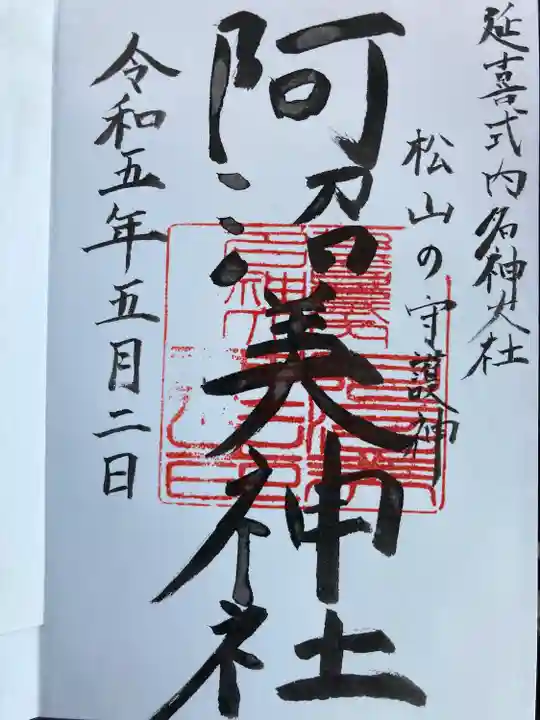 延喜式内名神大社
松山の守護神
阿沼美神社
令和五年五月二日